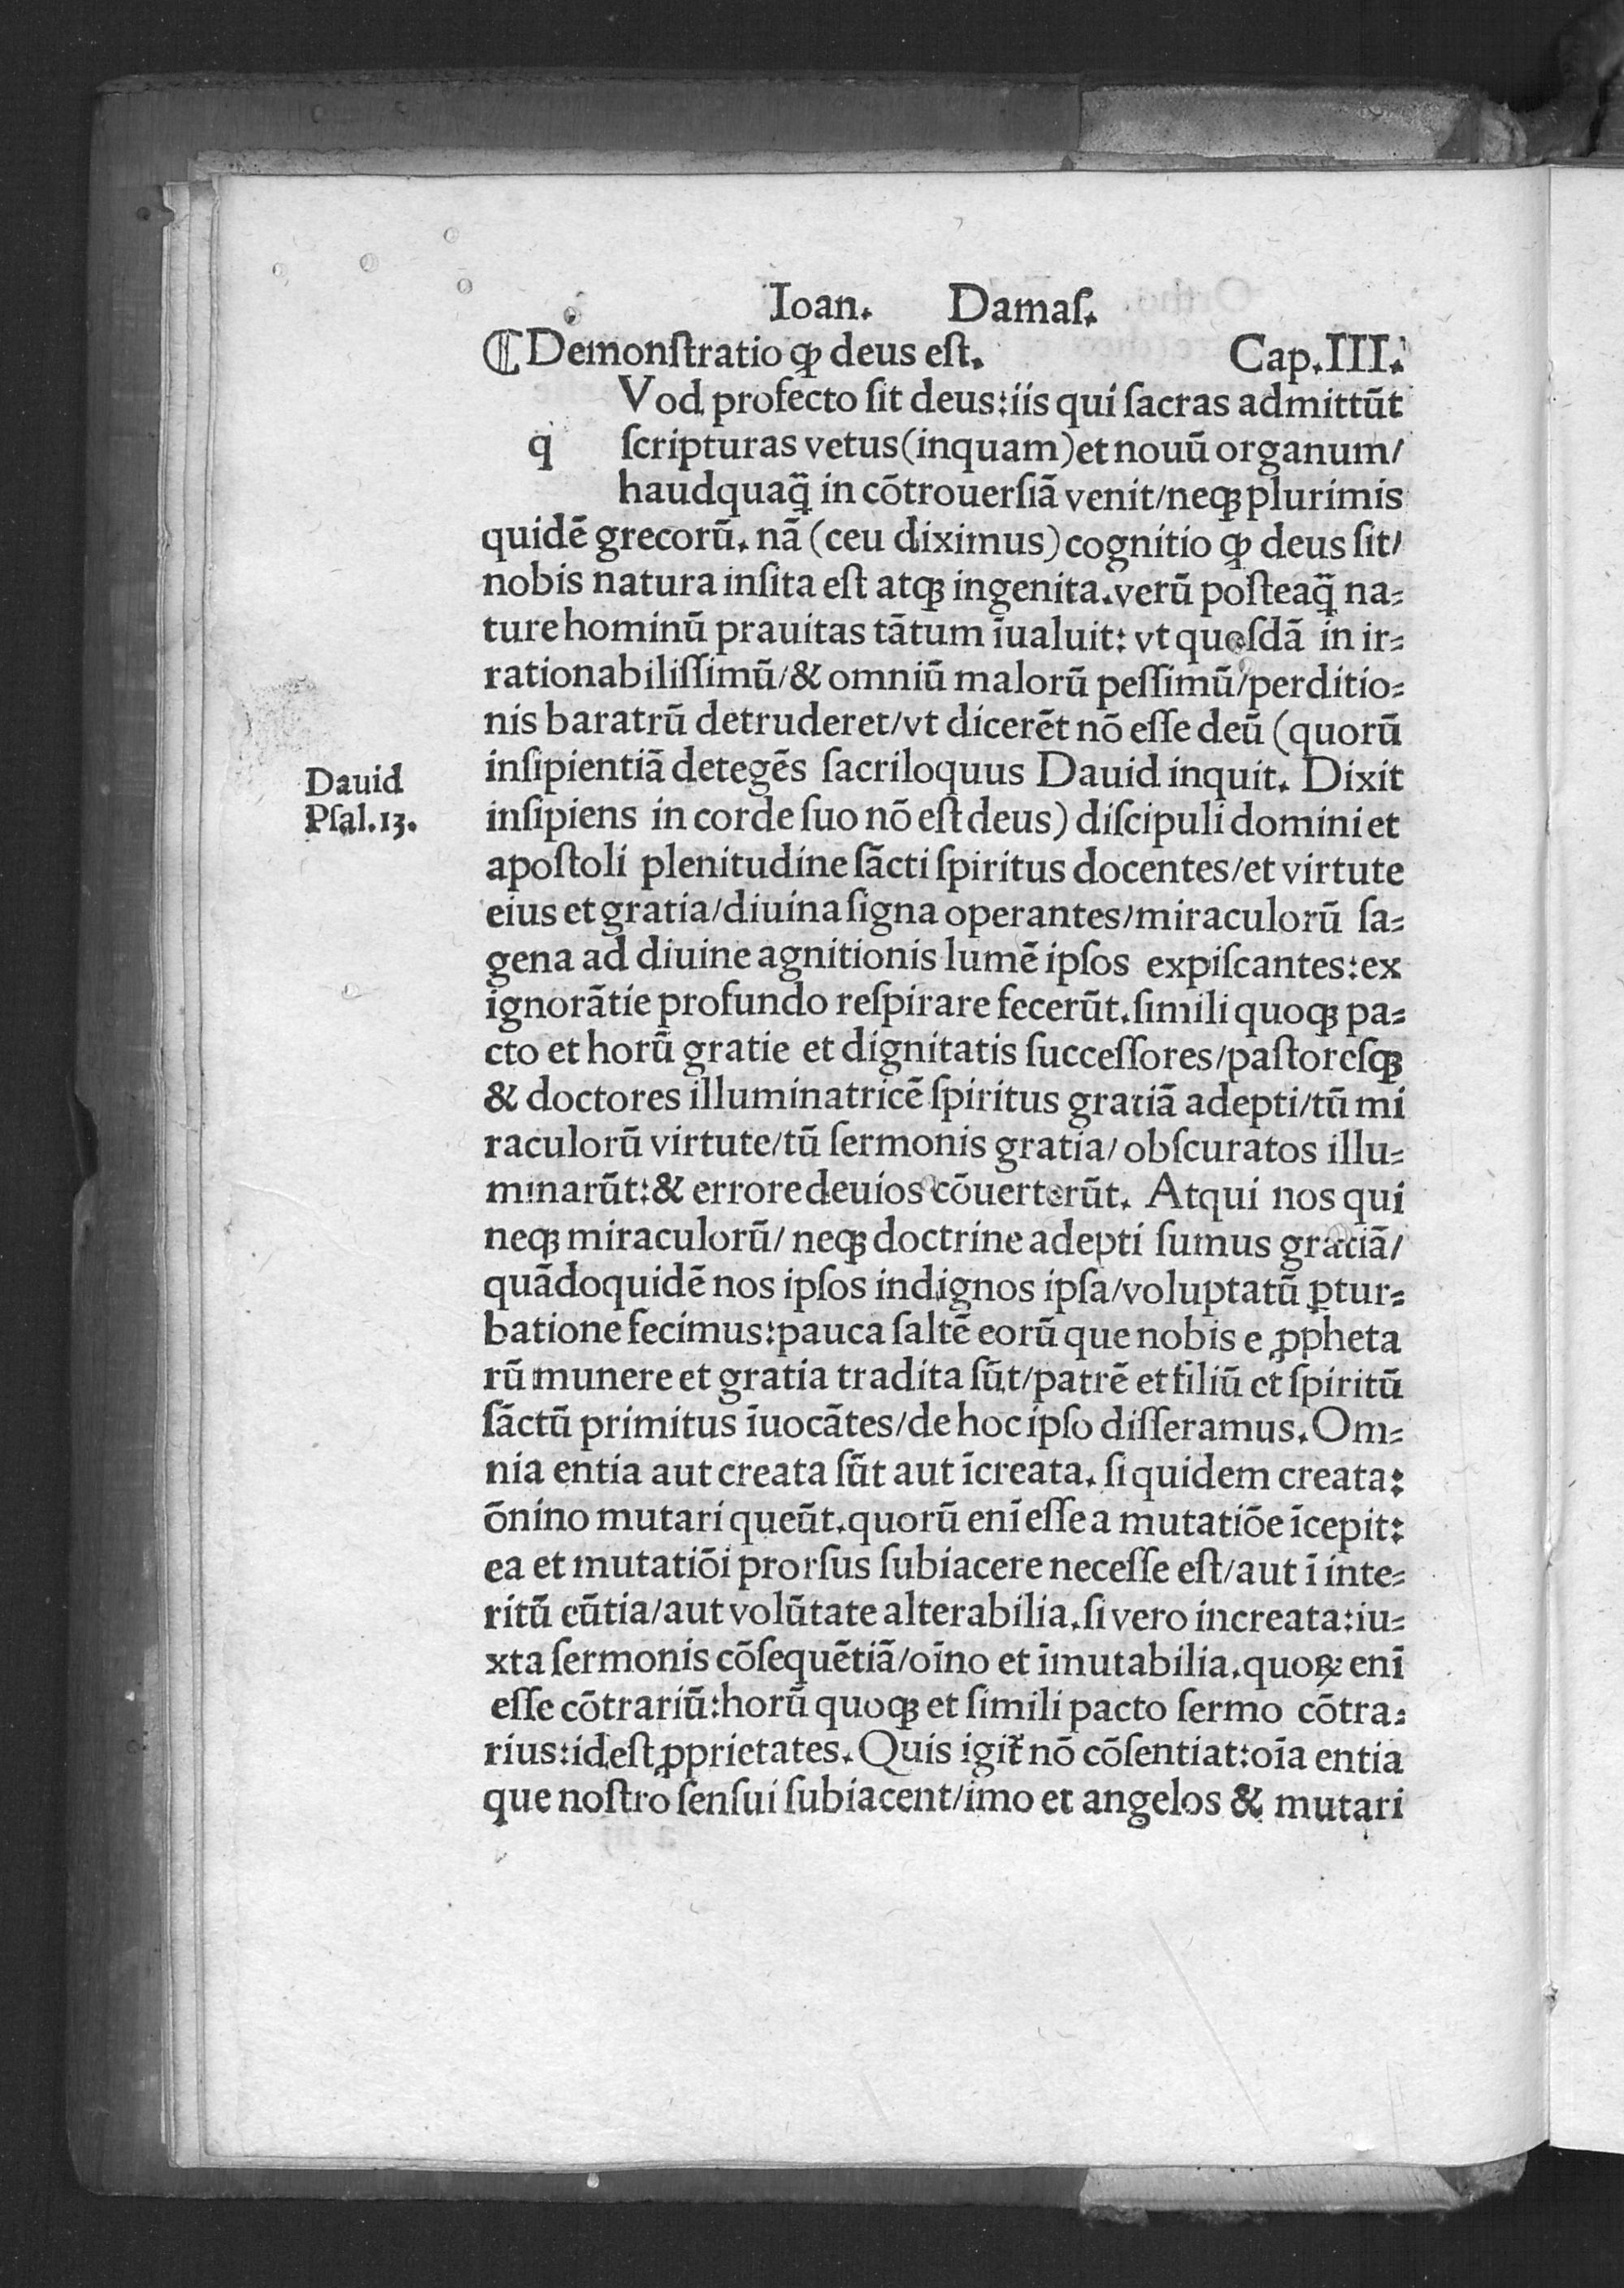 Ioan. Damaſ.
⸿Demonſtratio ꝙ deus eſt. Cap.III.
Vod profecto ſit deus:iis qui ſacras admittūt
q ſcripturas vetus(inquam)et nouū organum/
haudquaq̄ in cōtrouerſiā venit/neqꝫ plurimis
quidē grecorū. nā (ceu diximus)cognitio ꝙ deus ſit/
nobis natura inſita eſt atqꝫ ingenita.verū poſteaq̄ na⸗
ture hominū prauitas tātum īualuit: vt quoſdā in ir⸗
rationabiliſſimū/& omniū malorū peſſimū/perditio⸗
nis baratrū detruderet/vt dicerēt nō eſſe deū (quorū
inſipientiā detegēs ſacriloquus Dauid inquit. Dixit
Dauid
Pſal.13.
inſipiens in corde ſuo nō eſt deus) diſcipuli domini et
apoſtoli plenitudine ſācti ſpiritus docentes/et virtute
eius et gratia/diuina ſigna operantes/miraculorū ſa⸗
gena ad diuine agnitionis lumē ipſos expiſcantes:ex
ignorātie profundo reſpirare fecerūt.ſimili quoqꝫ pa⸗
cto et horū gratie et dignitatis ſucceſſores/paſtoreſqꝫ
& doctores illuminatricē ſpiritus gratiā adepti/tū mi
raculorū virtute/tū ſermonis gratia/obſcuratos illu⸗
minarūt:& errore deuios cōuerterūt. Atqui nos qui
neqꝫ miraculorū/ neqꝫ doctrine adepti ſumus gratiā/
quādoquidē nos ipſos indignos ipſa/voluptatū ꝑtur⸗
batione fecimus:pauca ſaltē eorū que nobis e ꝓpheta
rū munere et gratia tradita ſūt/patrē et filiū et ſpiritū
ſāctū primitus īuocātes/de hoc ipſo diſſeramus.Om⸗
nia entia aut creata ſūt aut īcreata. ſi quidem creata:
ōnino mutari queūt.quorū enī eſſe a mutatiōe īcepit:
ea et mutatiōi prorſus ſubiacere neceſſe eſt/aut ī inte⸗
ritū eūtia/aut volūtate alterabilia.ſi vero increata:iu⸗
xta ſermonis cōſequētiā/oīno et īmutabilia.quoꝝ enī
eſſe cōtrariū:horū quoqꝫ et ſimili pacto ſermo cōtra⸗
rius:id eſt ꝓprietates.Quis igit̄ nō cōſentiat:oīa entia
que noſtro ſenſui ſubiacent/imo et angelos & mutari